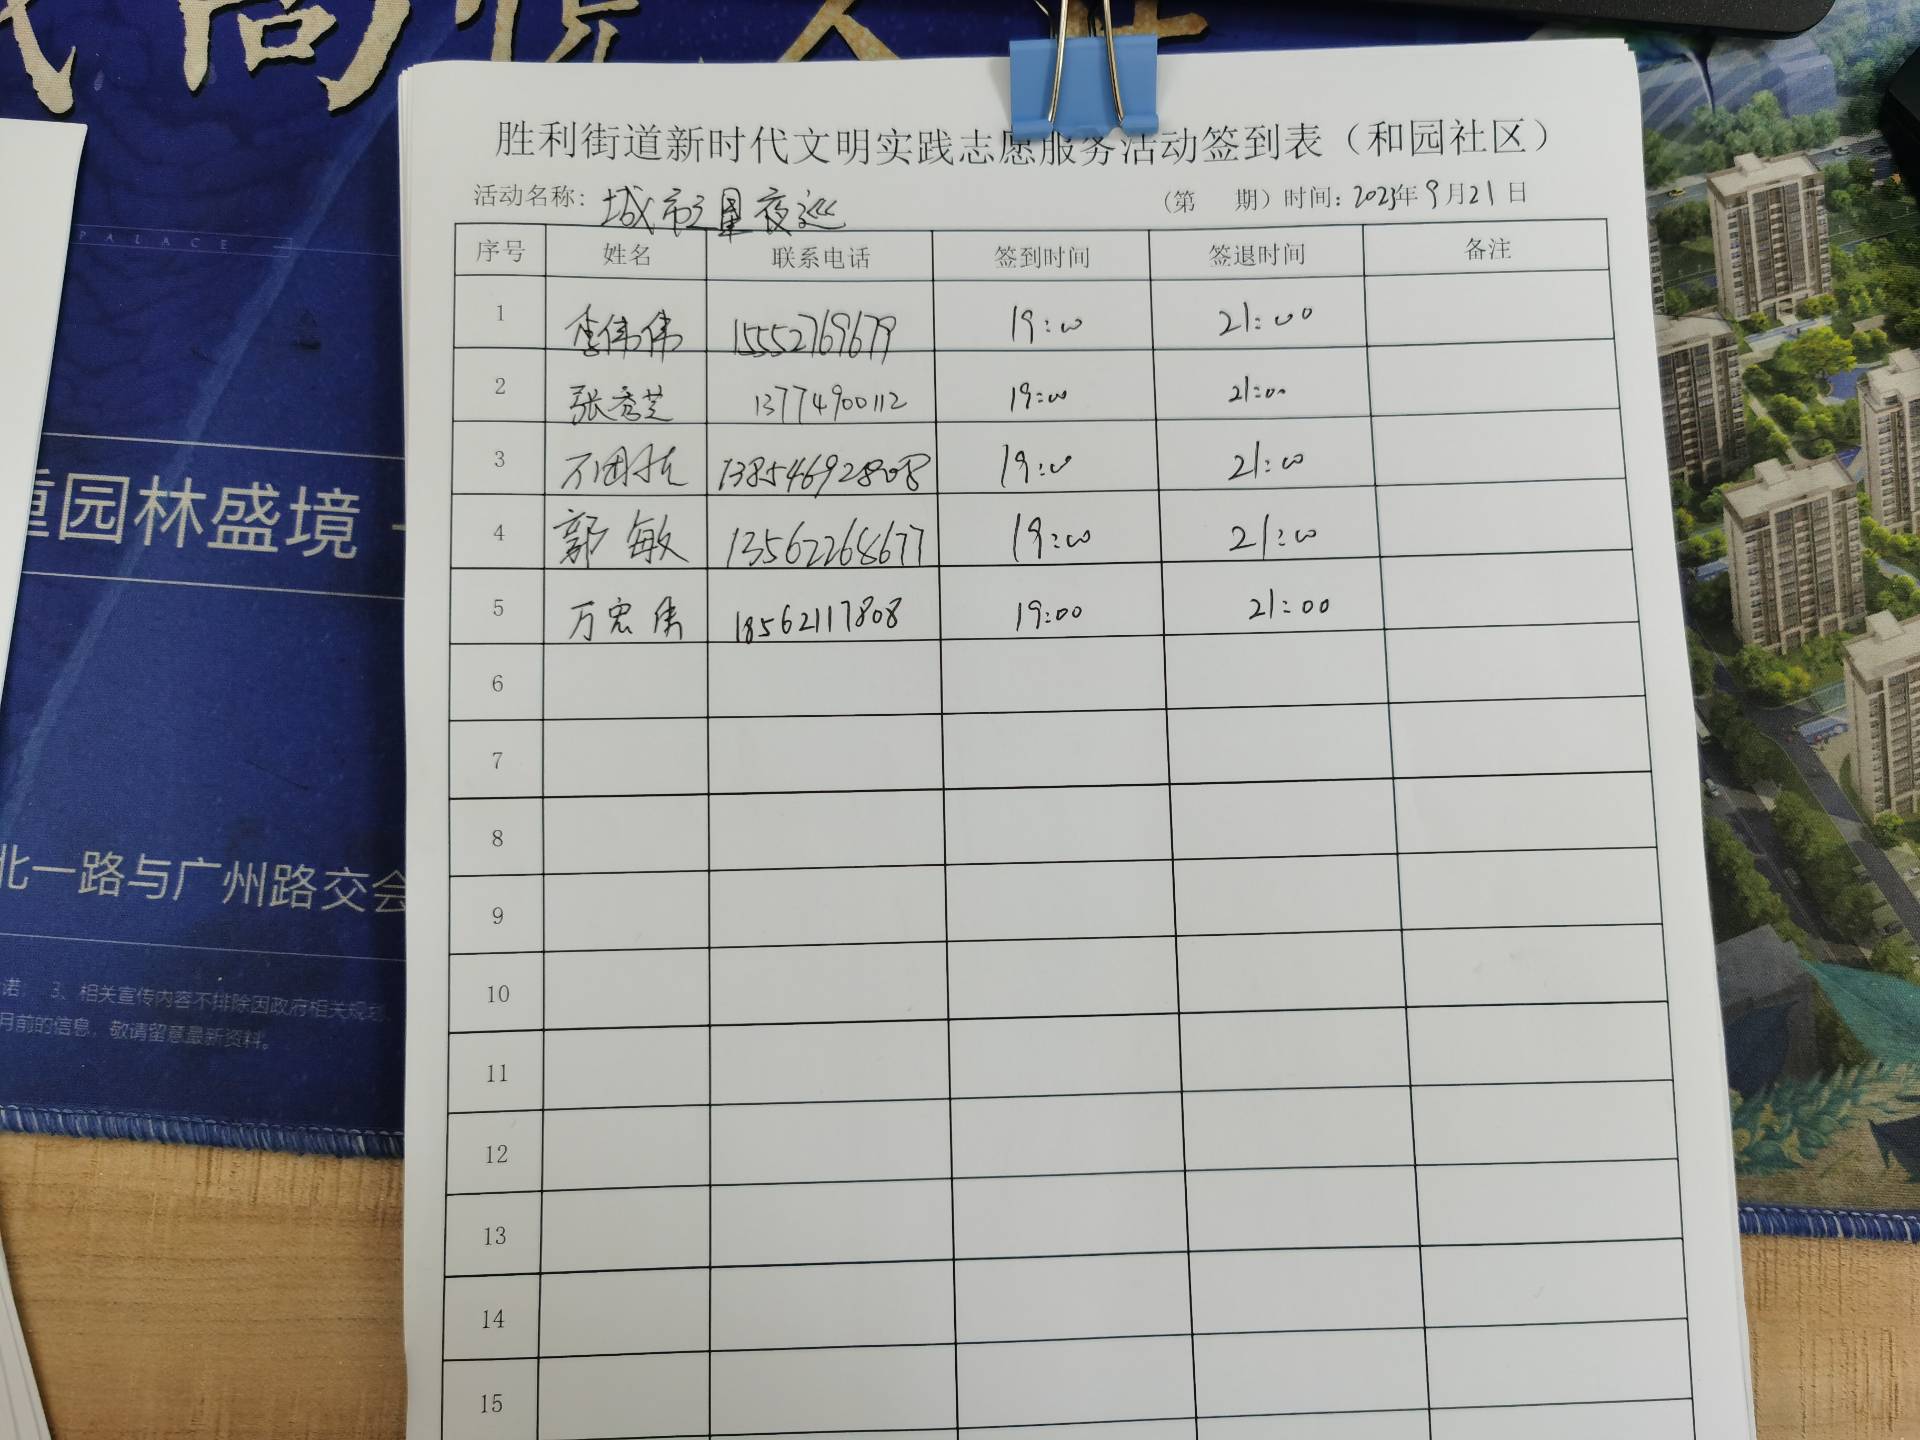 PALACE
园林盛境
北一路与广州路交会
诺。 3、相关宣传内容不排除因政府相关规划、
月前的信息，敬请留意最新资料。
胜利街道新时代文明实践志愿服务活动签到表（和园社区）
活动名称：城市之星夜巡 （第 期）时间：2023年9月21日
序号 姓名 联系电话 签到时间 签退时间 备注
1 李伟伟 15552769679 19:00 21:00
2 张秀芝 13774900112 19:00 21:00
3 13854692808 19:00 21:00
4 郭敏 13562268677 19:00 21:00
5 万忠伟 18562117808 19:00 21:00
6
7
8
9
10
11
12
13
14
15